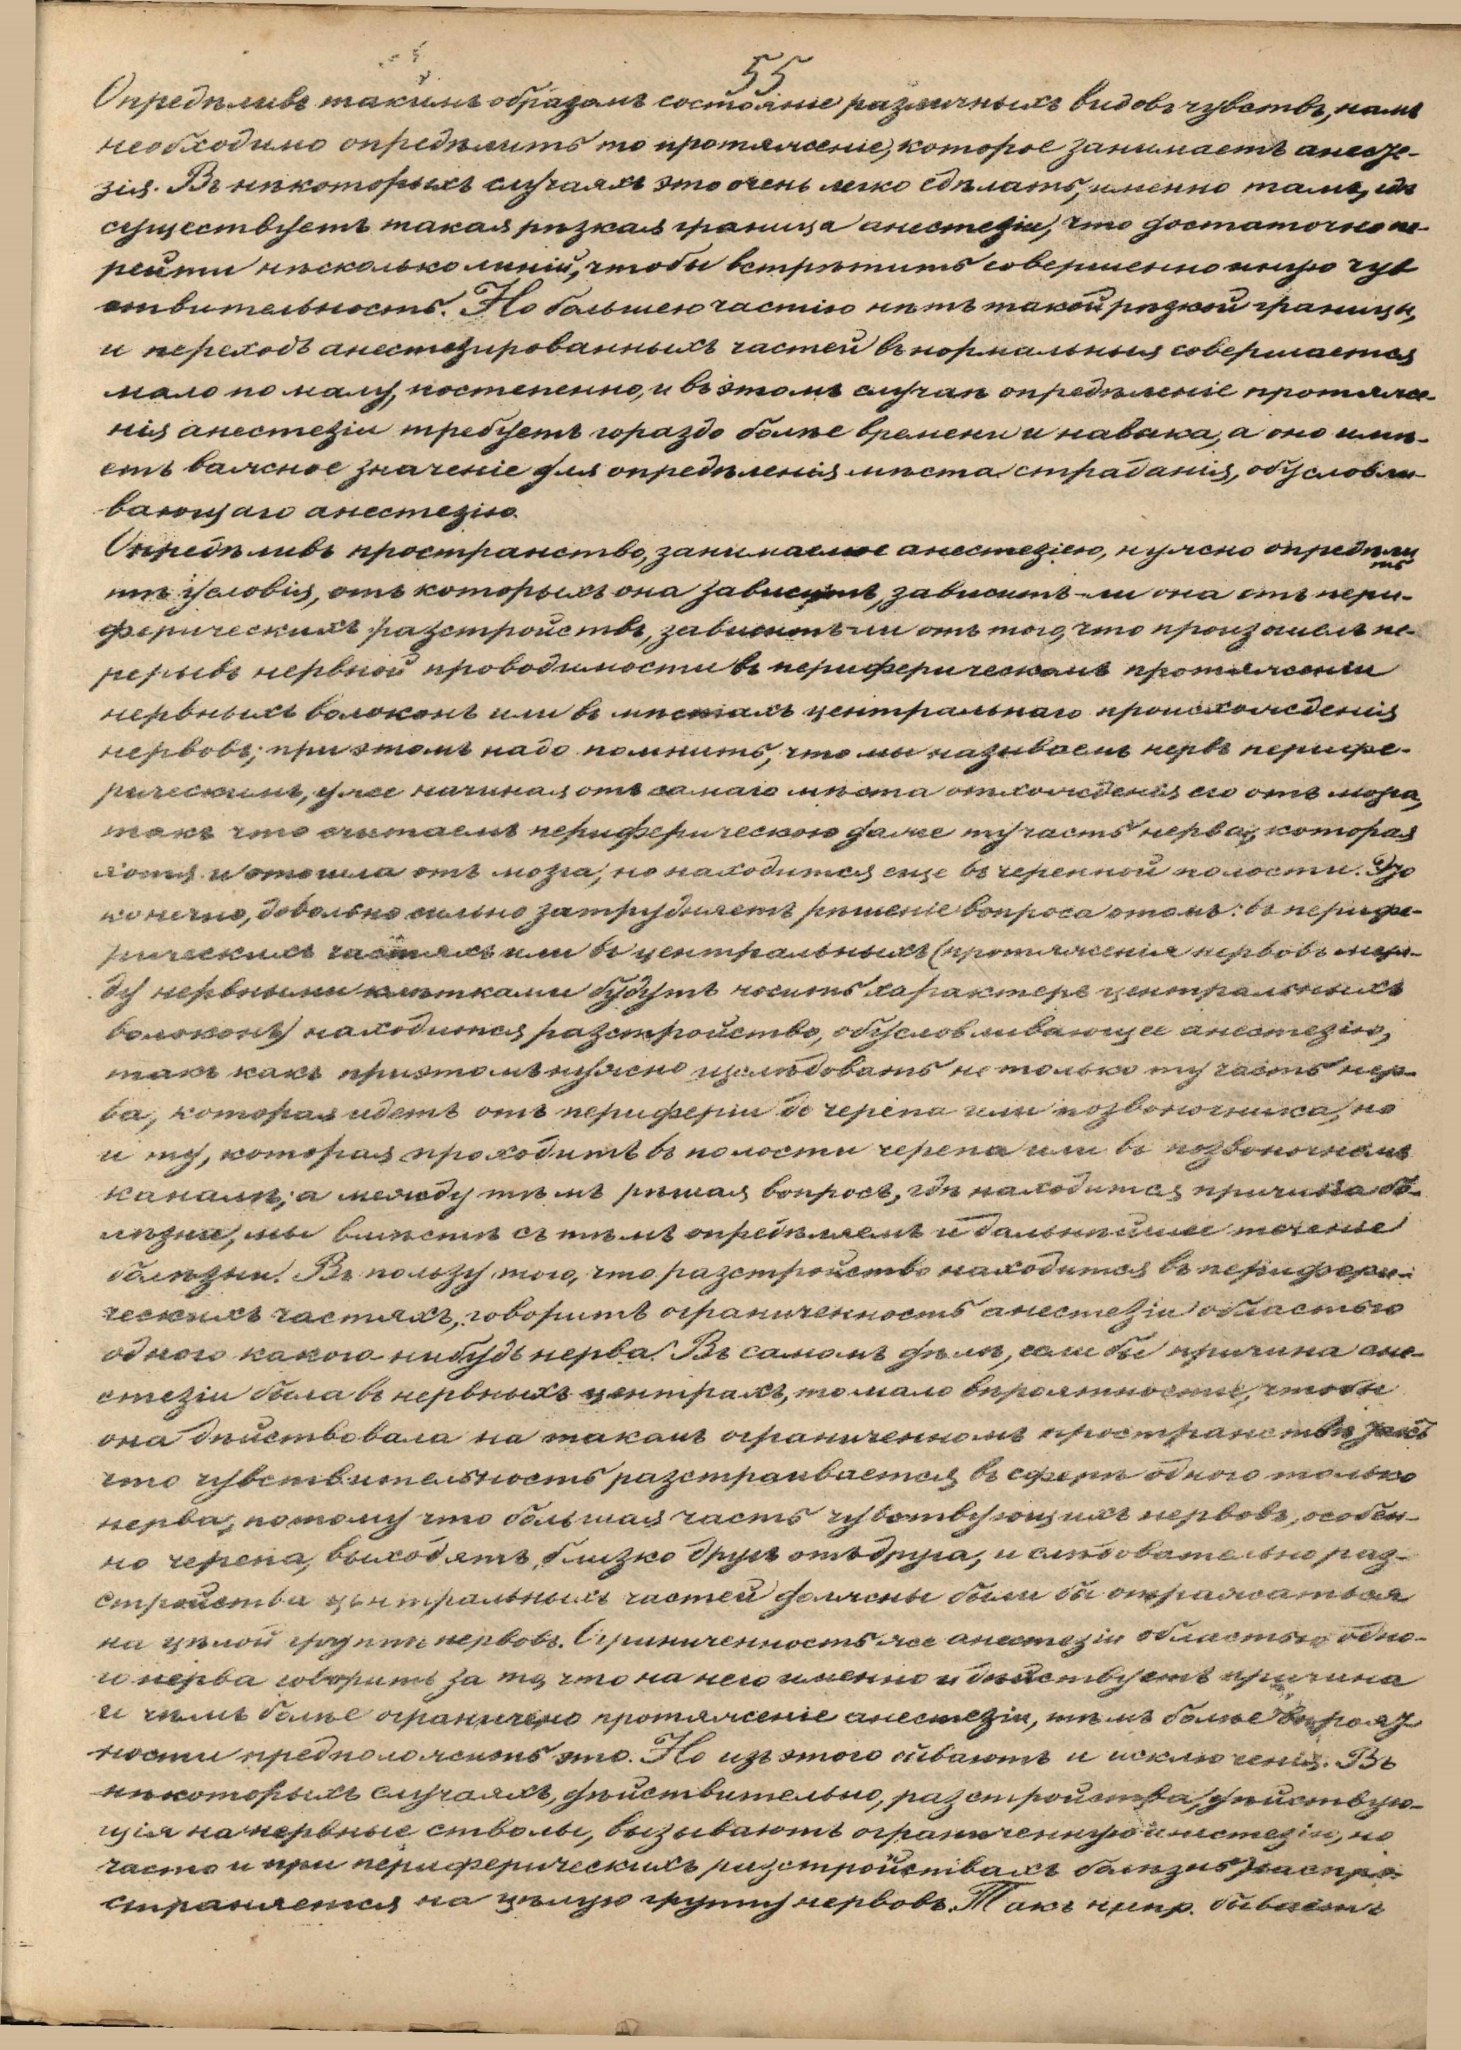 55
Опредѣливъ такимъ образомъ состояніе различныхъ видовъ чувствъ, намъ
необходимо опредѣлить то протяженіе, которое занимаетъ анесте-
зія. Въ нѣкоторыхъ случаяхъ это очень легко сдѣлать, именно тамъ, гдѣ
существуетъ такая рѣзкая граница анестезіи, что достаточно пе-
рейти нѣсколько линій, чтобы встрѣтить совершенно иную чув
ствительность. Но большею частію нѣтъ такой рѣзкой границы,
и переходъ анестезированныхъ частей въ нормальныя совершается
мало по малу, постепенно, и въ этомъ случаѣ опредѣленіе протяже-
нія анестезіи требуетъ гораздо болѣе времени и навыка, а оно имѣ-
етъ важное значеніе для опредѣленія мѣста страданія, обусловли-
вающаго анестезію.
Опредѣливъ пространство, занимаемое анестезіею, нужно опредѣли
ть условія, отъ которыхъ она зависитъ, зависитъ-ли она отъ пери-
ферическихъ разстройствъ, зависитъ-ли отъ того, что произошелъ пе-
рерывъ нервной проводимости въ периферическомъ протяженіи
нервныхъ волоконъ или въ мѣстахъ центральнаго происхожденія
нервовъ; при этомъ надо помнить, что мы называемъ нервъ перифе-
рическимъ, уже начиная отъ самаго мѣста отхожденія его отъ мозга,
такъ что считаемъ периферическою даже ту часть нерва, которая
хотя и отошла отъ мозга, но находится еще въ черепной полости. Это
конечно, довольно сильно затрудняетъ рѣшеніе вопроса о томъ: въ перифе-
рическихъ частяхъ или въ центральныхъ (протяженія нервовъ меж-
ду нервными клѣтками будутъ носить характеръ центральныхъ
волоконъ) находится разстройство, обусловливающее анестезію,
такъ какъ при этомъ нужно изслѣдовать не только ту часть нер-
ва, которая идетъ отъ периферіи до черепа или позвоночника, но
и ту, которая проходитъ въ полости черепа или въ позвоночномъ
каналѣ; а между тѣмъ рѣшая вопросъ, гдѣ находится причина бо-
лѣзни, мы вмѣстѣ съ тѣмъ опредѣляемъ и дальнѣйшее теченіе
болѣзни. Въ пользу того, что разстройство находится въ перифери-
ческихъ частяхъ, говоритъ ограниченность анестезіи областью
одного какого-нибудь нерва. Въ самомъ дѣлѣ, если бы причина ане-
стезіи была въ нервныхъ центрахъ, то мало вѣроятности, чтобы
она дѣйствовала на такомъ ограниченномъ пространствѣ,
что чувствительность разстраивается въ сферѣ одного только
нерва, потому что большая часть чувствующихъ нервовъ, особен-
но черепа, выходятъ близко другъ отъ друга, и слѣдовательно раз-
стройства центральныхъ частей должны были бы отражаться
на цѣлой группѣ нервовъ. Ограниченность же анестезіи областью одно-
го нерва говоритъ за то, что на него именно и дѣйствуетъ причина
и чѣмъ болѣе ограничено протяженіе анестезіи, тѣмъ болѣе вѣроят
ности предположить это. Но изъ этого бываютъ и исключенія. Въ
нѣкоторыхъ случаяхъ, дѣйствительно, разстройства, дѣйствую-
щія на нервные стволы, вызываютъ ограниченную анестезію, но
часто и при периферическихъ разстройствахъ болѣзнь распро-
страняется на цѣлую группу нервовъ. Такъ напр. бываетъ